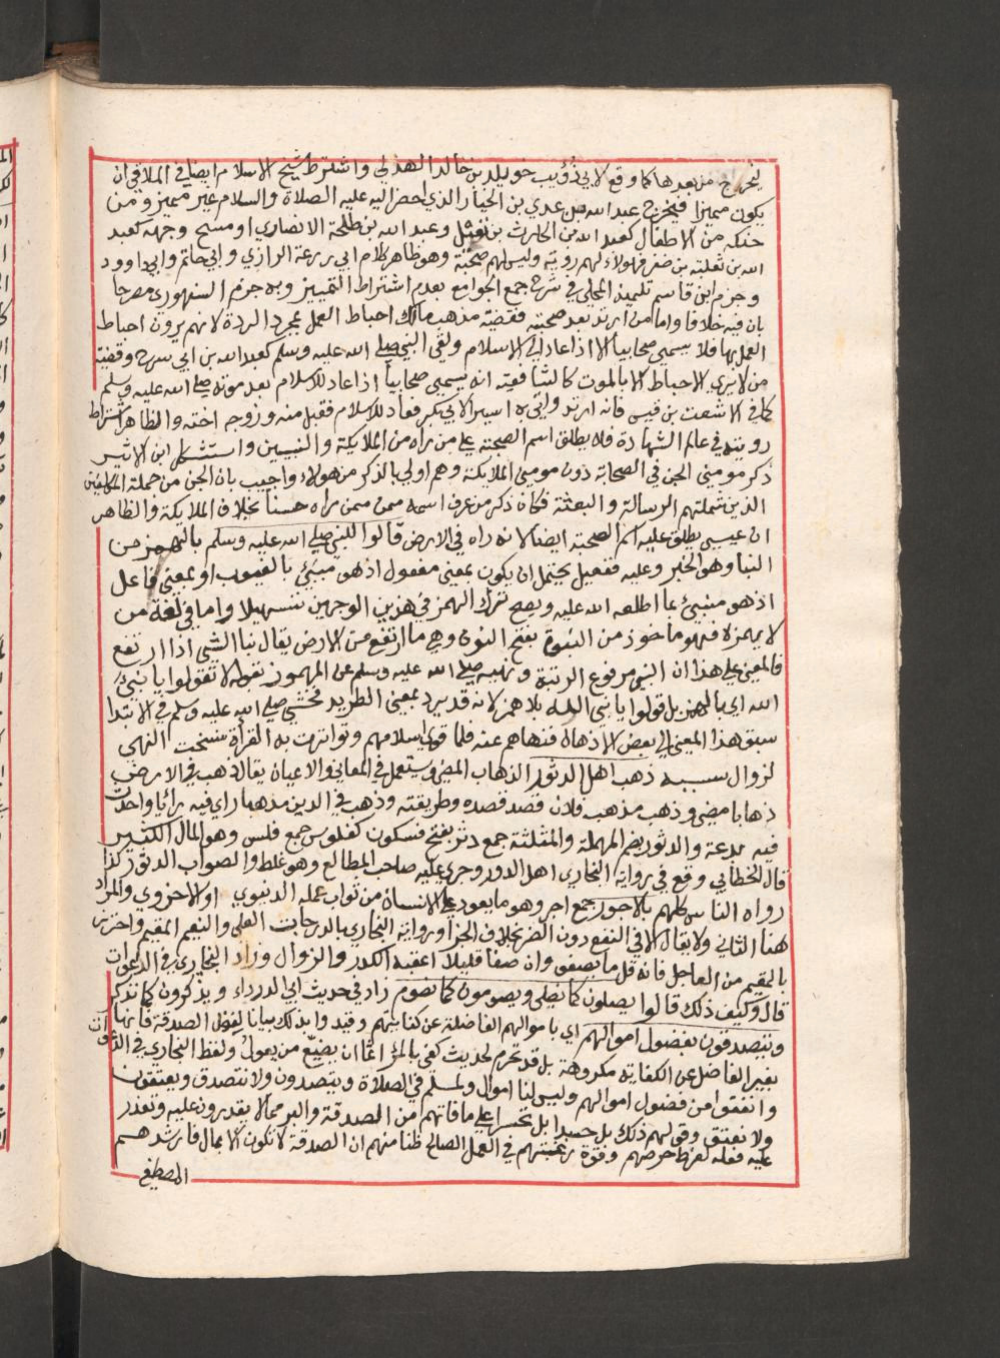 ليخرج من بعدها كما وقع لابي ذؤيب خويلد بن خالد الهذلي واشترط شيخ الاسلام ايضا في الملاقي ان
يكون مميزا فيخرج عبد الله بن عدي بن الخيار الذي احضر اليه عليه الصلاة والسلام غير مميز ومن
حنكه من الاطفال كعبد الله بن الحارث بن نوفل وعبد الله بن طلحة الانصاري او مسح وجهه كعبد
الله بن ثعلبة بن صغر فهولاء لهم روية وليس لهم صحبة وهو ظاهر كلام ابي زرعة الرازي وابي حاتم وابي داوود
وجزم ابن قاسم تلميذ المحلي في شرح جمع الجوامع بعدم اشتراط التمييز وبه جزم السنهوري مصرحا
بان فيه خلافا واما من ارتد بعد صحبته فقضية مذهب مالك احباط العمل بمجرد الردة لانهم يرون احباط
العمل بها فلا يسمى صحابيا الا اذا عاد الى الاسلام ولقي النبي صلى الله عليه وسلم كعبد الله بن ابي سرح وقضية
من لا يرى الاحباط الا بالموت كالشافعية انه يسمى صحابيا اذا عاد للاسلام بعد موته صلى الله عليه وسلم
كما في الاشعث بن قيس فانه ارتد واتي به اسيرا لابي بكر فعاد للاسلام فقبل منه وزوجه اخته والظاهر اشتراط
رويته في عالم الشهادة فلا يطلق اسم الصحبة على من راه من الملايكة والنبيين واستشكل ابن الاثير
ذكر مومني الجن في الصحابة دون مومني الملايكة وهم اولى بالذكر من هولاء واجيب بان الجن من جملة المكلفين
الذين شملتهم الرسالة والبعثة فكان ذكر من عرف اسمه ممن راه حسنا بخلاف الملايكة والظاهر
ان عيسى يطلق عليه اسم الصحبة ايضا لانه راه في الارض قالوا للنبي صلى الله عليه وسلم بالهمز من
النبا وهو الخبر وعليه ففعيل يحتمل ان يكون بمعنى مفعول اذ هو منبئ بالغيوب او بمعنى فاعل
اذ هو منبئ عما اطلعه الله عليه ويصح ترك الهمز في هذين الوجهين تسهيلا واما في لغة من
لا يهمزه فهو ماخوذ من النبوة بفتح النون وهي ما ارتفع من الارض يقال نبا الشي اذا ارتفع
فالمعنى على هذا ان النبي مرفوع الرتبة ونهيه صلى الله عليه وسلم عن المهموز بقوله لا تقولوا يا نبئ
الله اي بالهمز بل قولوا يا نبي الله بلا همز لانه قد يرد بمعنى الطريد فخشي صلى الله عليه وسلم في الابتدا
سبق هذا المعنى الى بعض الاذهان فنهاهم عنه فلما قوي اسلامهم وتواترت به القراة نسخت النهي
لزوال سببه ذهب اهل الدثور الذهاب المضي ويستعمل في المعاني والاعيان يقال ذهب في الارض
ذهابا مضى وذهب مذهب فلان قصد قصده وطريقته وذهب في الدين مذهبا راي فيه رايا واحدث
فيه بدعة والدثور بضم المهملة والمثلثة جمع دثر بفتح فسكون كفلوس جمع فلس وهو المال الكثير
قال الخطابي وقع في رواية البخاري اهل الدور وجرى عليه صاحب المطالع وهو غلط والصواب الدثور كذا
رواه الناس كلهم بالاجور جمع اجر وهو ما يعود على الانسان من ثواب عمله الدنيوي او الاخروي والمراد
هنا الثاني ولا يقال الا في النفع دون الضر بخلاف الجزا ورواية البخاري بالدرجات العلى والنعيم المقيم واحترز
بالمقيم من العاجل فانه قل ما يصفو وان صفا قليلا اعقبه الكدر والزوال وزاد البخاري في الدعوات
قال وكيف ذلك قالوا يصلون كما نصلي ويصومون كما نصوم زاد في حديث ابي الدرداء ويذكرون كما نذكر
ويتصدقون بفضول اموالهم اي باموالهم الفاضلة عن كفايتهم وقيد وا بذلك بيانا لفضل الصدقة فانها
بغير الفاضل عن الكفاية مكروهة بل قد تحرم لحديث كفى بالمرء اثما ان يضيع من يعول ولفظ البخاري في الدعوات
وانفقوا من فضول اموالهم وليس لنا اموال ولمسلم في الصلاة ويتصدقون ولا نتصدق ويعتقون
ولا نعتق وقولهم ذلك بل حسدا بل تحسرا على ما فاتهم من الصدقة والبر مما لا يقدرون عليه وتعذر
عليه فعله لفرط حرصهم وقوة رغبتهم في العمل الصالح ظنا منهم ان الصدقة لا تكون الا بمال فارشدهم
المصطفى